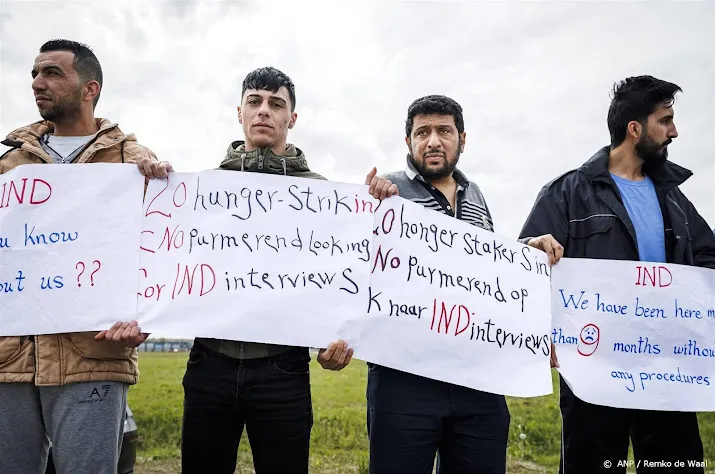 IND
u know
out us ??
20 hunger-strikin
CNO purmerend looking
For IND interviews
20 honger stakers in
NO purmerend op
Knaar IND interviews
IND
We have been here m
than months withou
any procedures
A7
© ANP / Remko de Waal